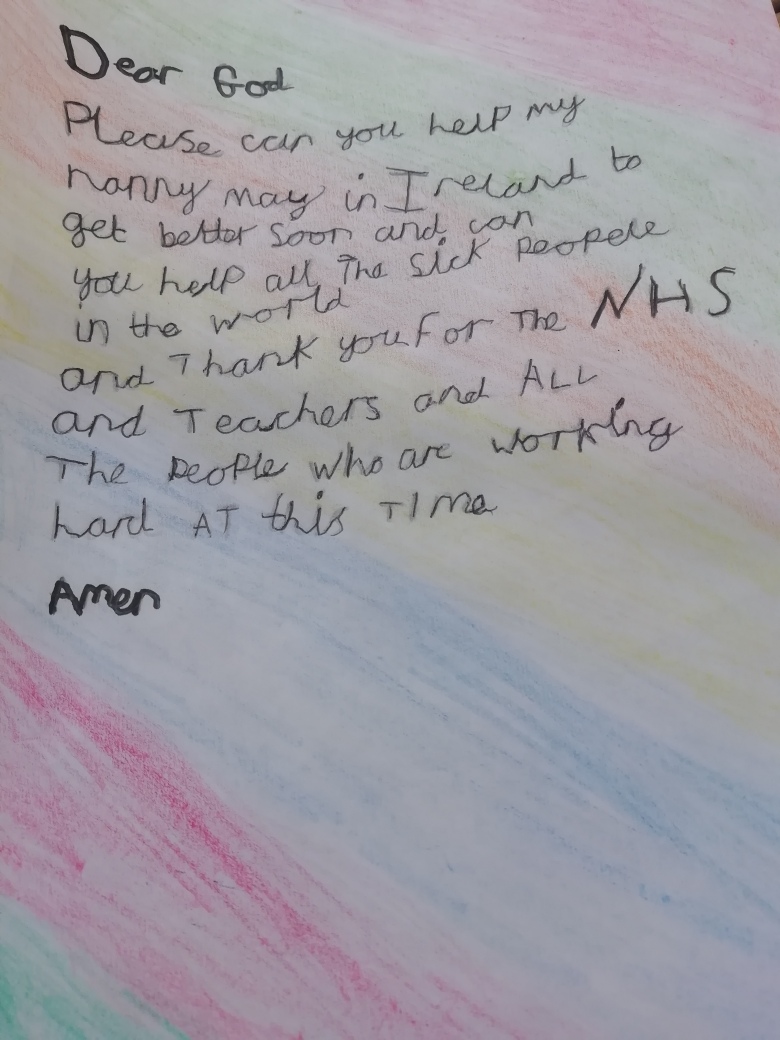 Dear God
Please can you help my
nanny may in Ireland to
get better soon and can
you help all The sick peopele
in the world
and Thank you For The NHS
and Teachers and ALL
The People who are working
hard AT this TIme
Amen